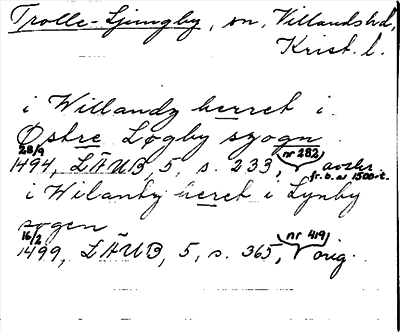 Trolle-Ljungby, sn, Villands hd,
Krist. l.
i Willandz herret i
Østre Løgby szogn
28/9 1494, LÄUB, 5, s. 233, nr 282, avskr. fr. b. av 1500-t.
i Wilantz heret i Lynby
sogen
16/2 1499, LÄUB, 5, s. 365, nr 419, orig.